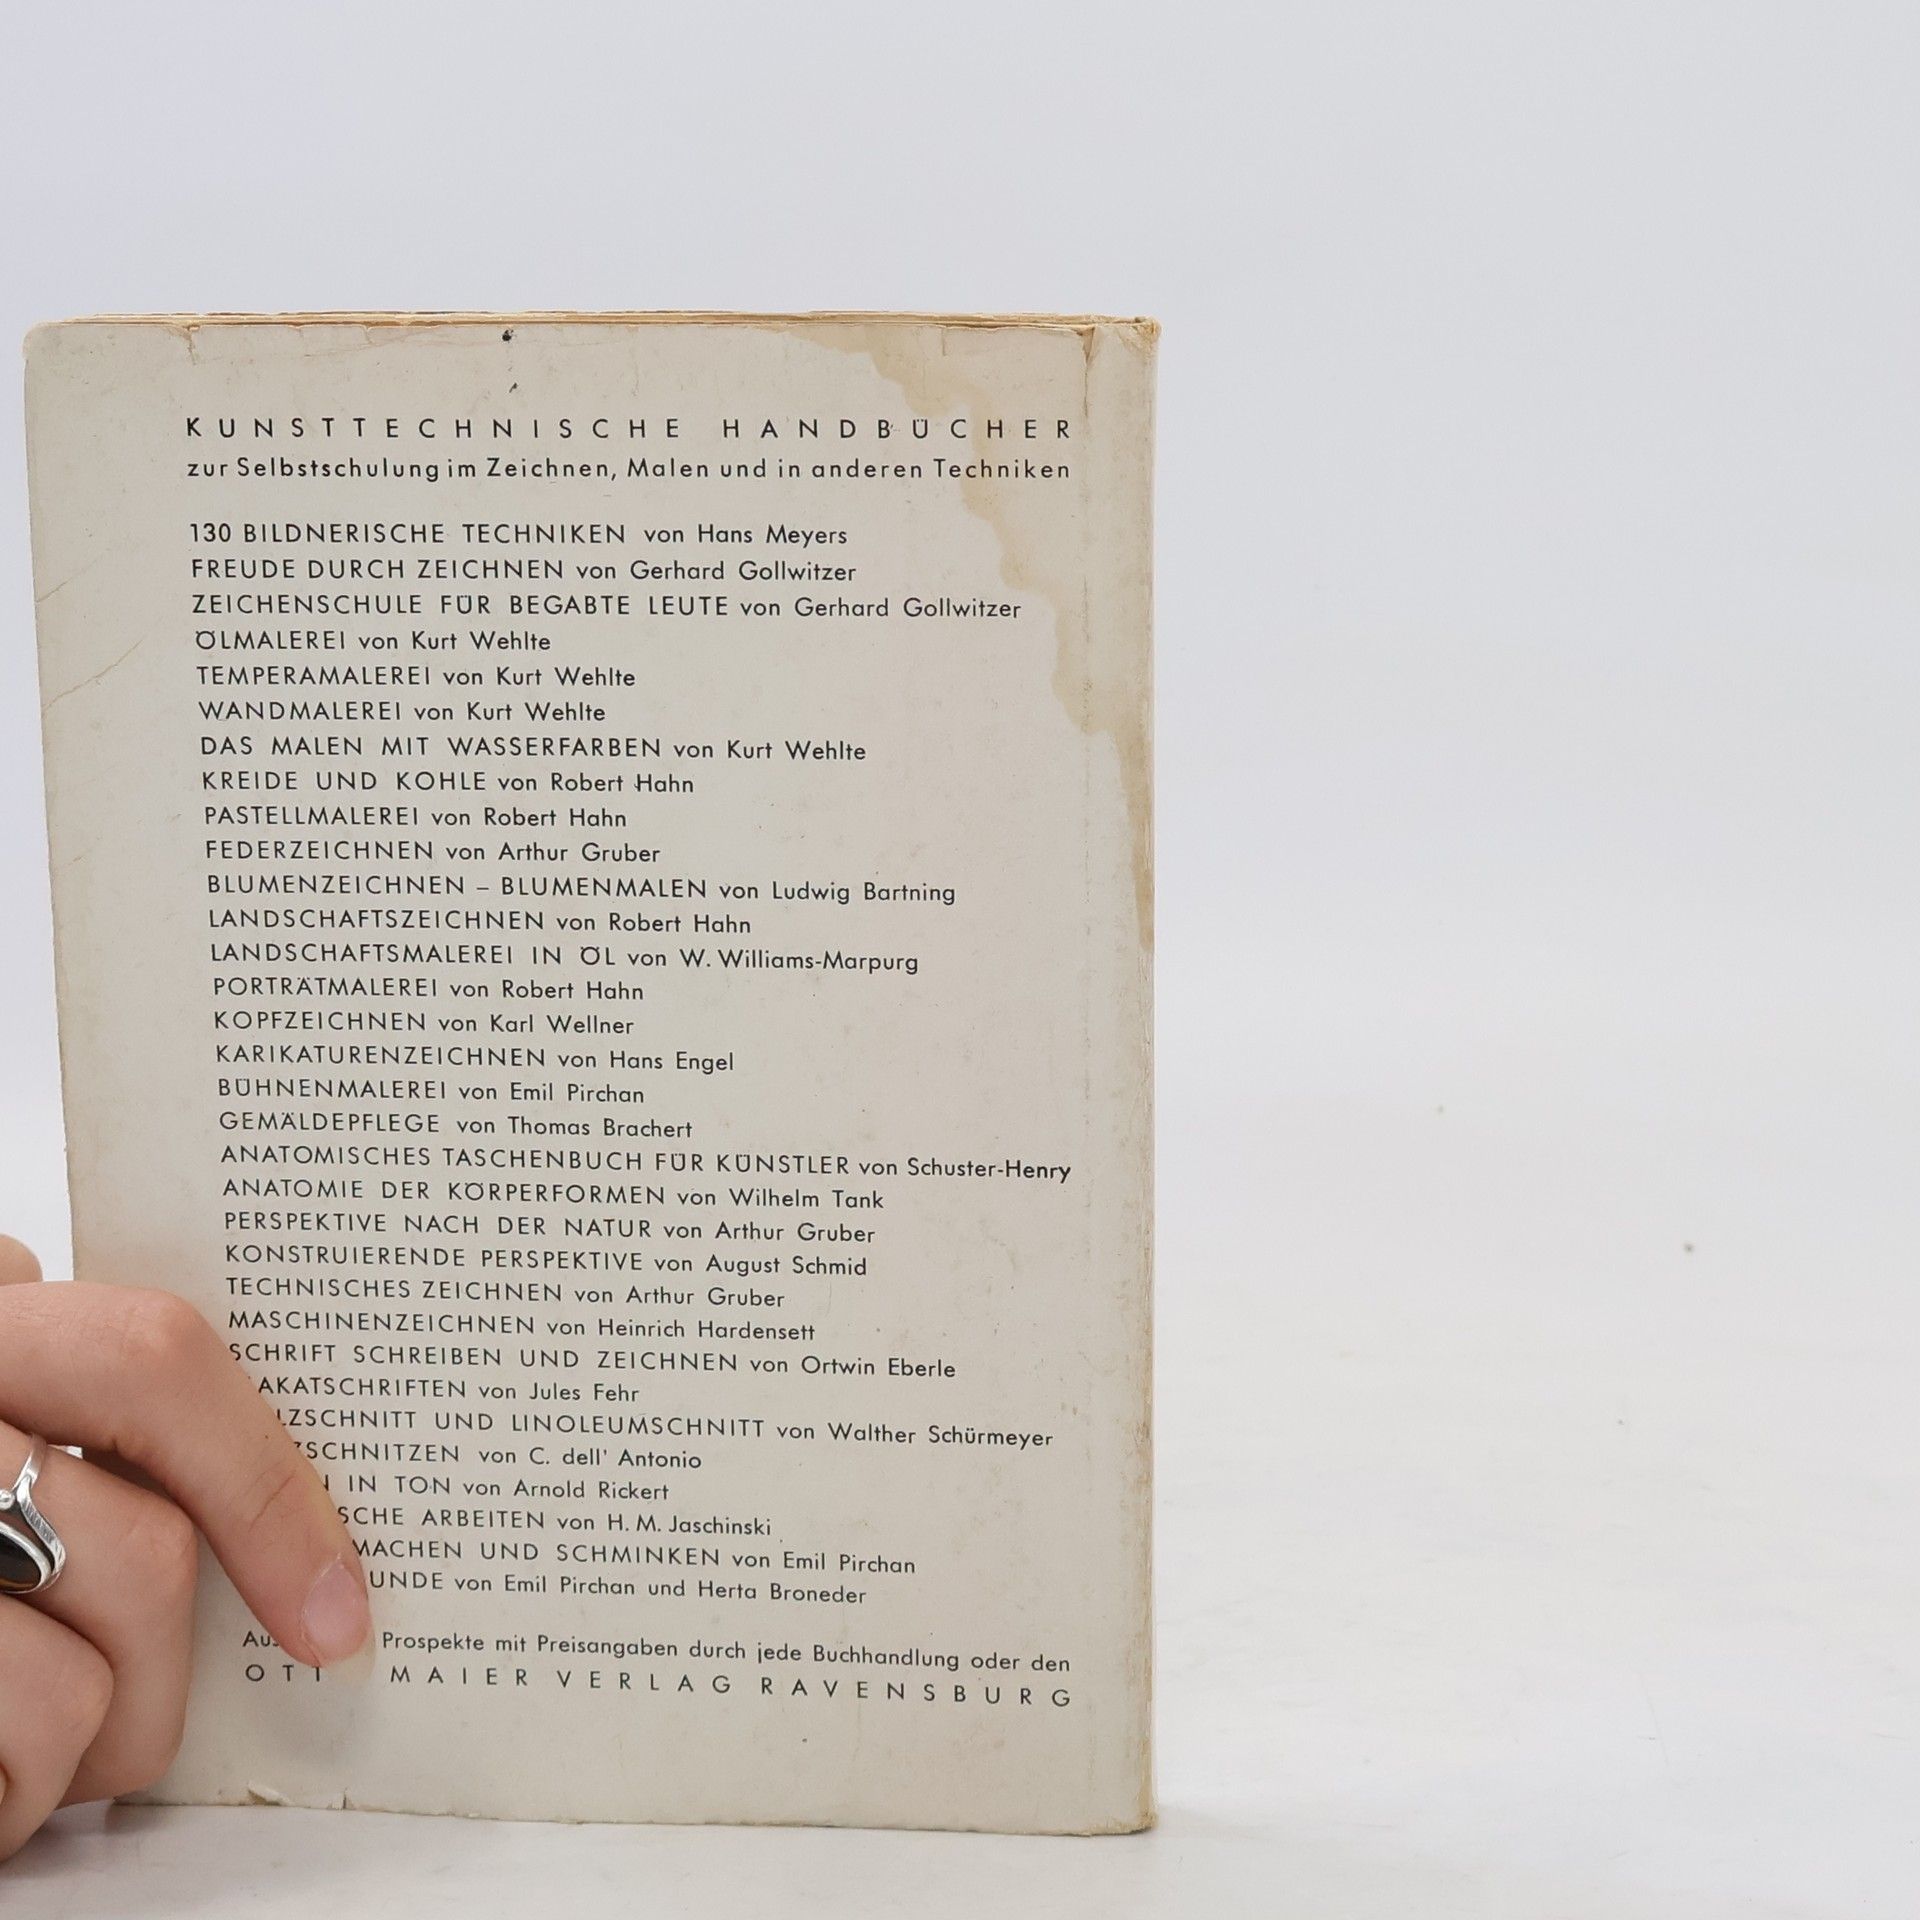 KUNSTTECHNISCHE HANDBÜCHER
zur Selbstschulung im Zeichnen, Malen und in anderen Techniken
130 BILDNERISCHE TECHNIKEN von Hans Meyers
FREUDE DURCH ZEICHNEN von Gerhard Gollwitzer
ZEICHENSCHULE FÜR BEGABTE LEUTE von Gerhard Gollwitzer
ÖLMALEREI von Kurt Wehlte
TEMPERAMALEREI von Kurt Wehlte
WANDMALEREI von Kurt Wehlte
DAS MALEN MIT WASSERFARBEN von Kurt Wehlte
KREIDE UND KOHLE von Robert Hahn
PASTELLMALEREI von Robert Hahn
FEDERZEICHNEN von Arthur Gruber
BLUMENZEICHNEN – BLUMENMALEN von Ludwig Bartning
LANDSCHAFTSZEICHNEN von Robert Hahn
LANDSCHAFTSMALEREI IN ÖL von W. Williams-Marpurg
PORTRÄTMALEREI von Robert Hahn
KOPFZEICHNEN von Karl Wellner
KARIKATURENZEICHNEN von Hans Engel
BÜHNENMALEREI von Emil Pirchan
GEMÄLDEPFLEGE von Thomas Brachert
ANATOMISCHES TASCHENBUCH FÜR KÜNSTLER von Schuster-Henry
ANATOMIE DER KÖRPERFORMEN von Wilhelm Tank
PERSPEKTIVE NACH DER NATUR von Arthur Gruber
KONSTRUIERENDE PERSPEKTIVE von August Schmid
TECHNISCHES ZEICHNEN von Arthur Gruber
MASCHINENZEICHNEN von Heinrich Hardensett
SCHRIFT SCHREIBEN UND ZEICHNEN von Ortwin Eberle
AKATSCHRIFTEN von Jules Fehr
LZSCHNITT UND LINOLEUMSCHNITT von Walther Schürmeyer
ZSCHNITZEN von C. dell' Antonio
N IN TON von Arnold Rickert
SCHE ARBEITEN von H. M. Jaschinski
MACHEN UND SCHMINKEN von Emil Pirchan
UNDE von Emil Pirchan und Herta Broneder
Prospekte mit Preisangaben durch jede Buchhandlung oder den
OTT MAIER VERLAG RAVENSBURG